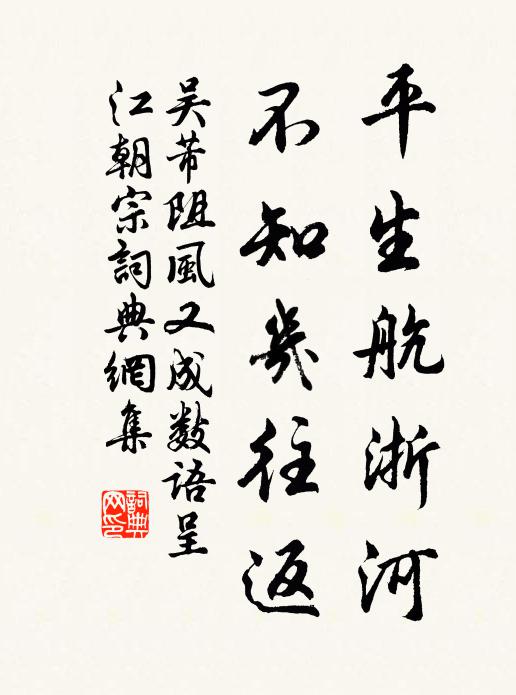 平生航浙河
不知幾往返
吴芾阻風又成数語呈
江朝宗詞典網集
詞典网印